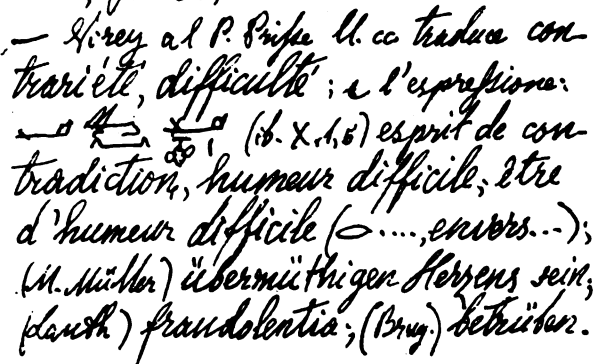 — Virey al P. Prisse ll. cc traduce con-
trariété, difficulté; e l'espressione:
(ib. X, 1, 5) esprit de con-
tradiction, humeur difficile; être
d'humeur difficile ( ...., envers...);
(M. Müller) übermüthigen Herzens sein;
(Lauth) fraudolentia; (Brug.) betrüben.